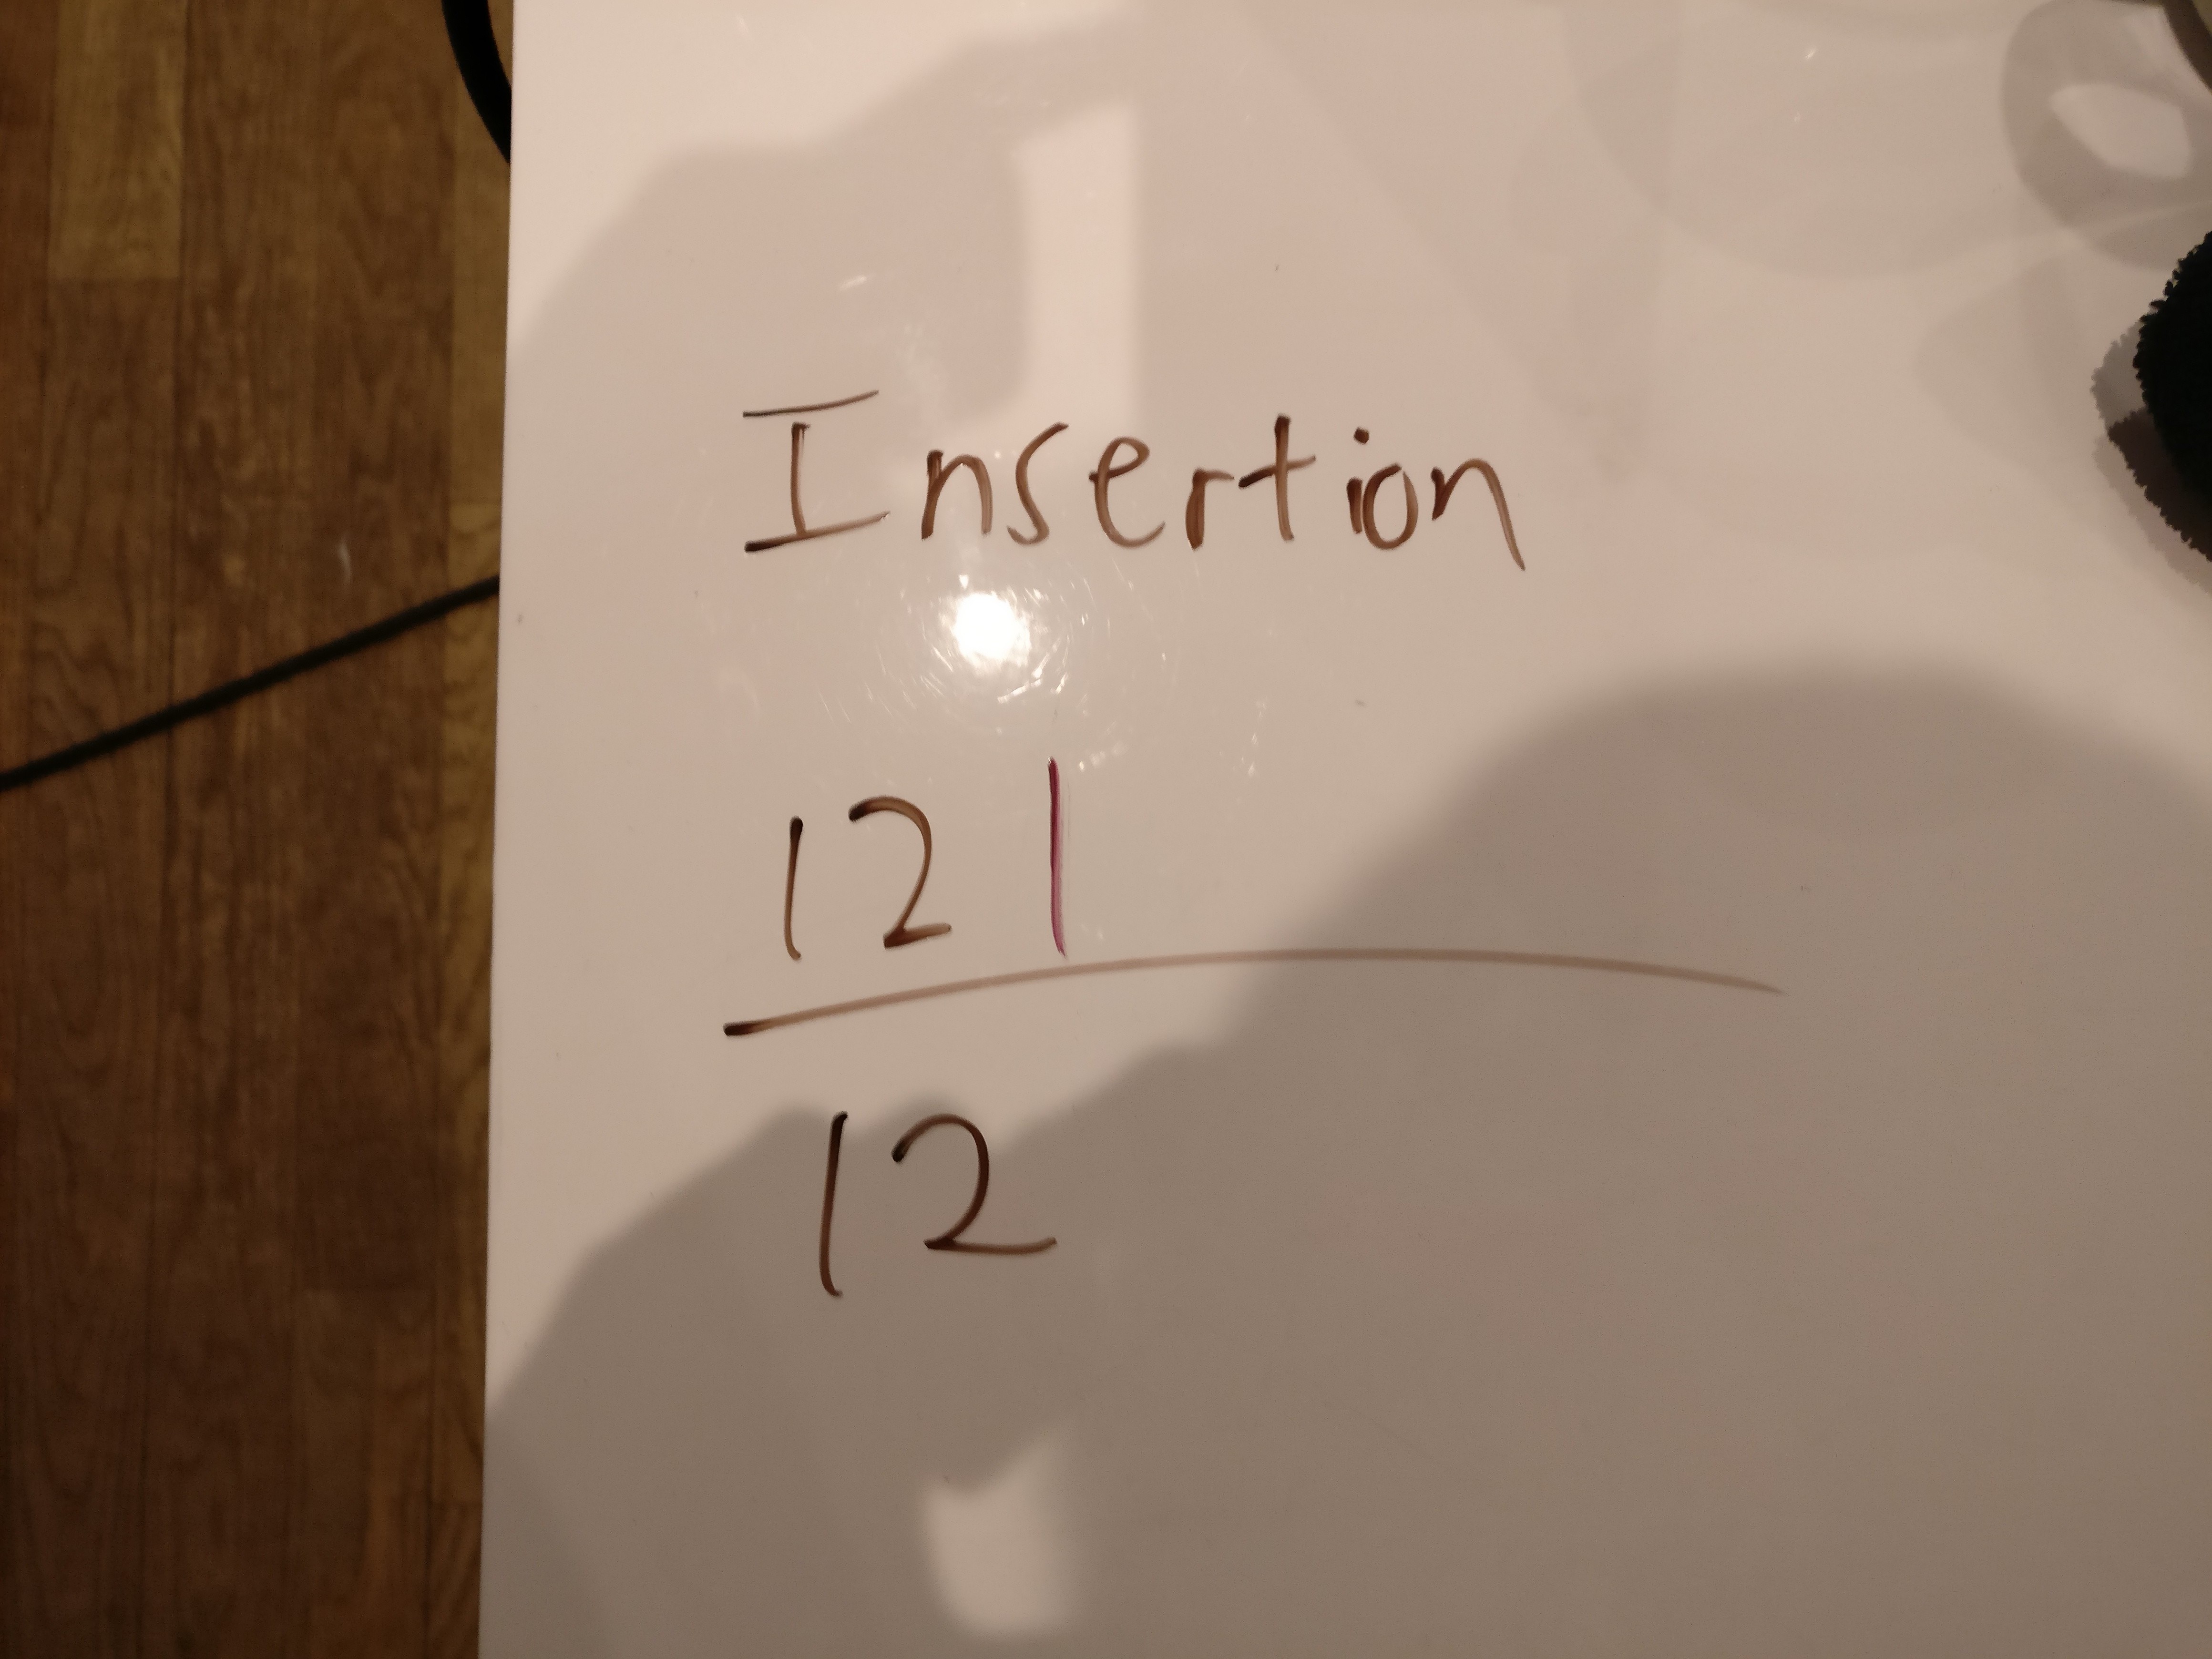 Insertion
12 |
12